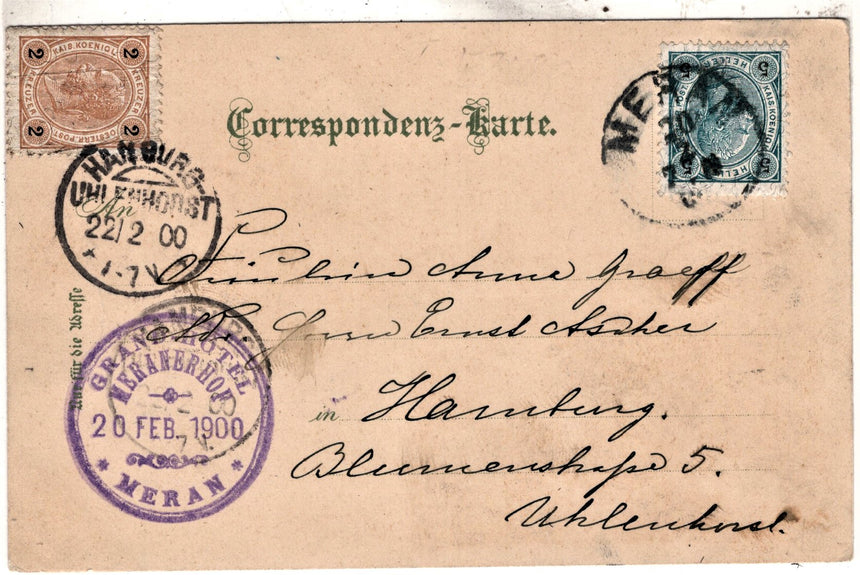 2 KAIS. KOENIGL. 2
2 OESTERR. POST. 2
KREUZER
Correspondenz-Karte.
ME
20
5 HELLER 5
KAIS. KOENIGL.
5 HELLER 5
HAMBURG-
UHLENHORST
22/2 00
*1-7V*
An
Fräulein Anna Graeff
Adr. Herrn Ernst Ascher
in Hamburg.
Blumenstraße 5.
Uhlenhorst.
Nur für die Adresse
GRAND HOTEL
MERANERHOF
20 FEB. 1900
* MERAN *
00
7V